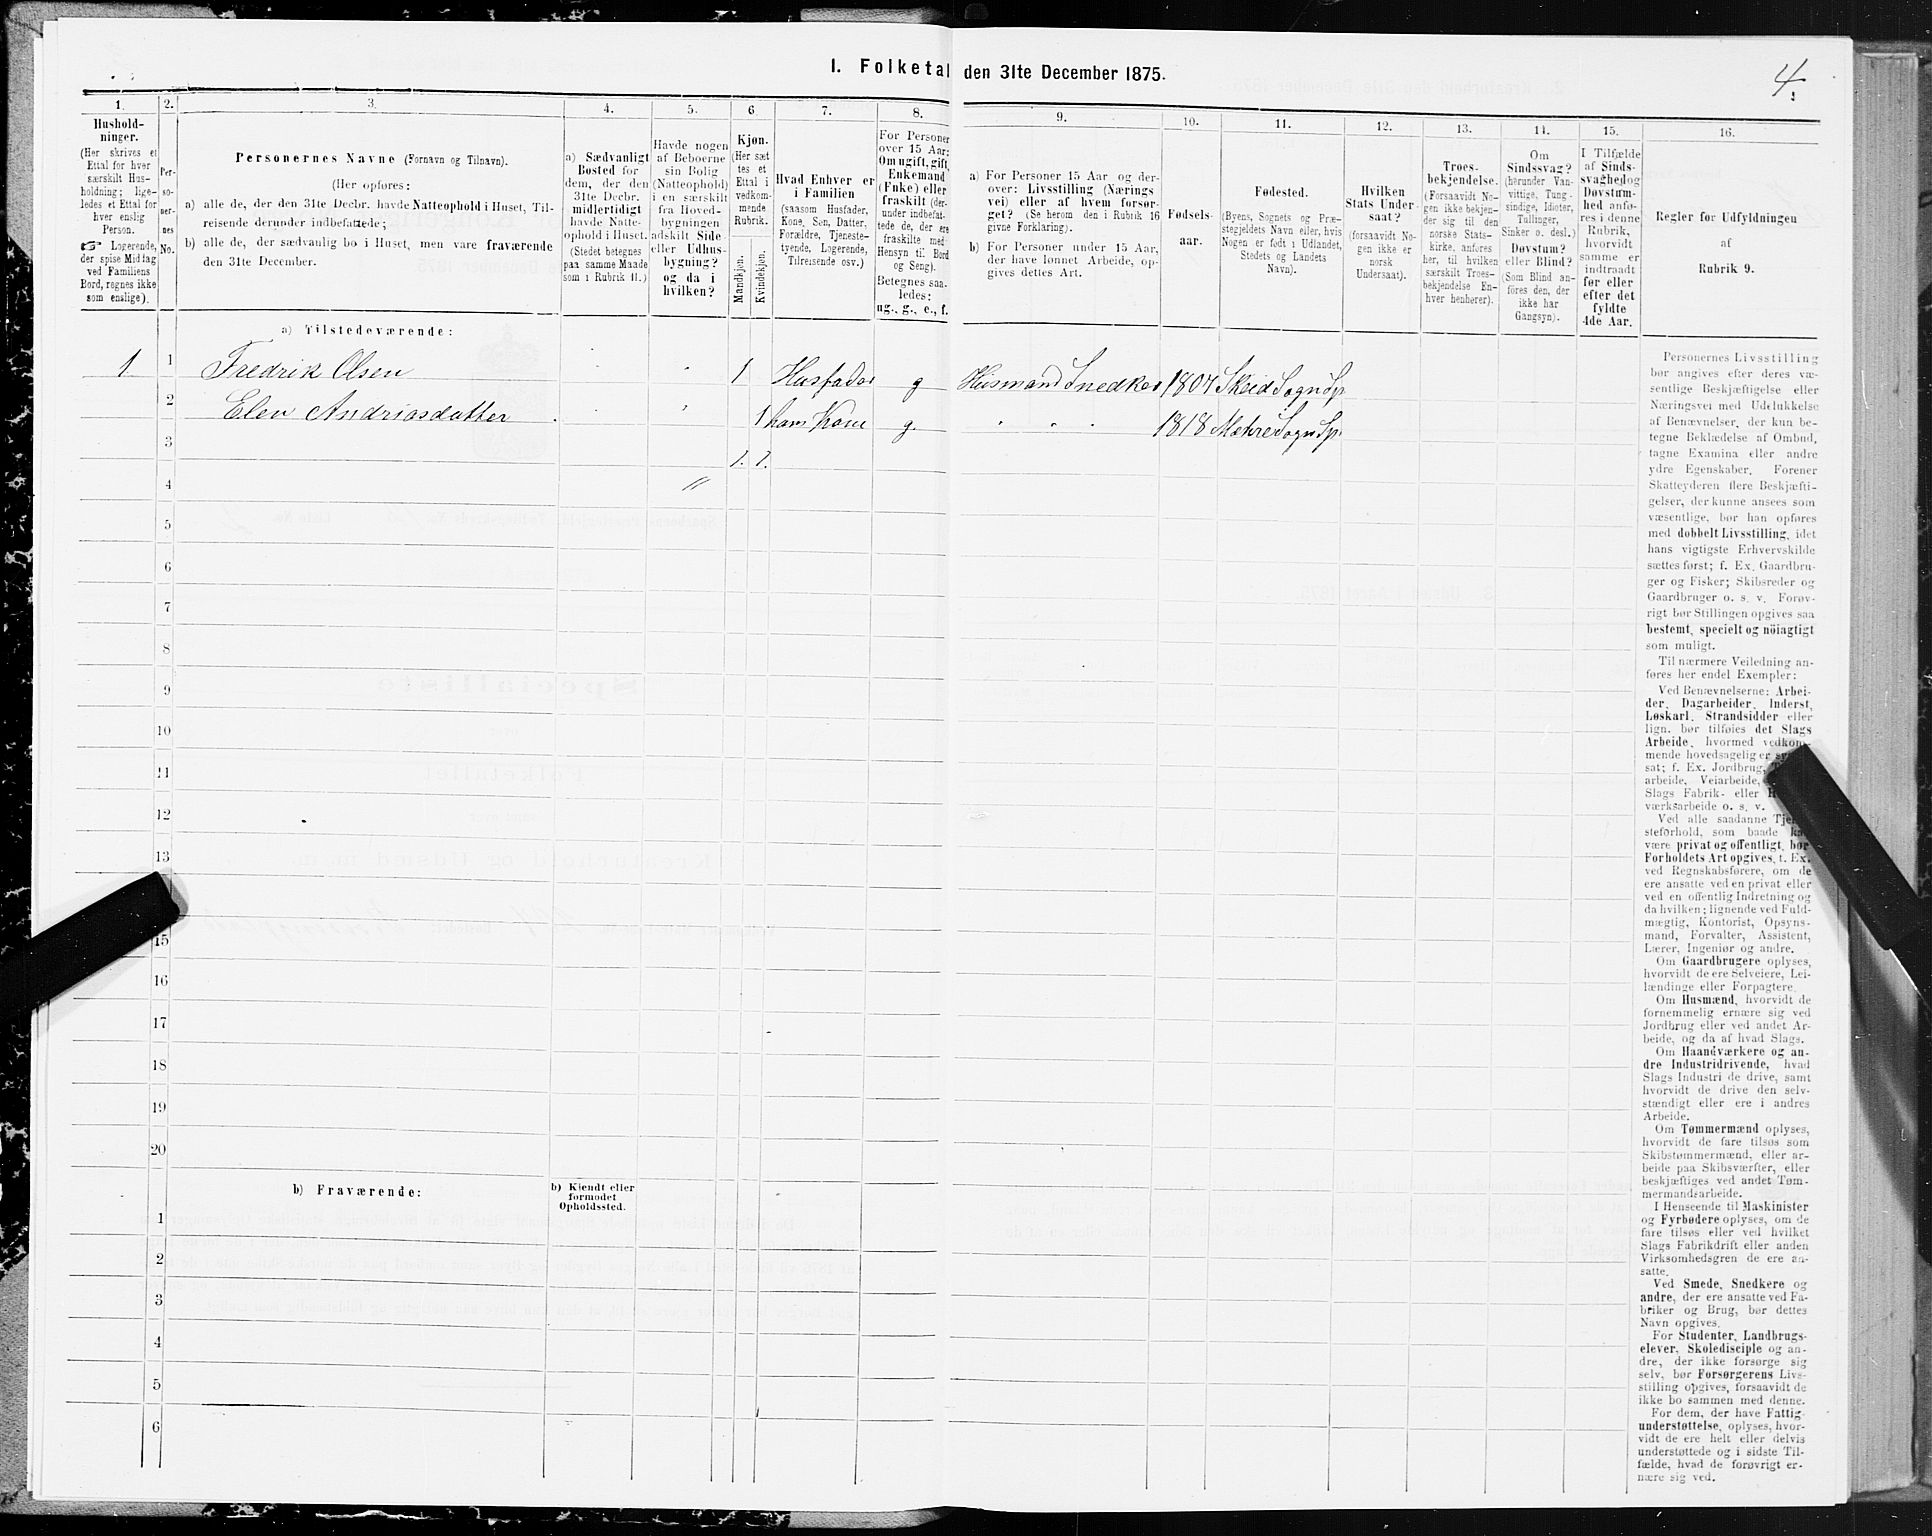 I. Folketal den 31te December 1875.
4.
1.
Hushold-
ninger.
(Her skrives et
Ettal for hver
særskilt Hus-
holdning; lige-
ledes et Ettal for
hver enslig
Person.
☞ Logerende,
der spise Middag
ved Familiens
Bord, regnes ikke
som enslige).
2.
Per-
so-
ner-
nes
No.
3.
Personernes Navne (Fornavn og Tilnavn).
(Her opføres:
a) alle de, der den 31te Decbr. havde Natteophold i Huset, Til-
reisende derunder indbefattede;
b) alle de, der sædvanlig bo i Huset, men vare fraværende
den 31te December.
4.
a) Sædvanligt
Bosted for
dem, der den
31te Decbr.
midlertidigt
havde Natte-
ophold i Huset.
(Stedet betegnes
paa samme Maade
som i Rubrik 11.)
5.
Havde nogen
af Beboerne
sin Bolig
(Natteophold)
i en særskilt
fra Hoved-
bygningen
adskilt Side-
eller Udhus-
bygning?
og da i
hvilken?
6.
Kjøn.
(Her sæt-
tes et
Ettal i
vedkom-
mende
Rubrik.
Mandkjøn.
Kvindekjøn.
7.
Hvad Enhver er
i Familien
(saasom Husfader,
Kone, Søn, Datter,
Forældre, Tjeneste-
tyende, Logerende,
Tilreisende osv.)
8.
For Personer
over 15 Aar:
Om ugift, gift,
Enkemand
(Enke) eller
fraskilt (der-
under indbefat-
tede de, der ere
fraskilte med
Hensyn til Bord
og Seng).
Betegnes saa-
ledes:
ug., g., e., f.
9.
a) For Personer 15 Aar og der-
over: Livsstilling (Nærings-
vei) eller af hvem forsør-
get? (Se herom den i Rubrik 16
givne Forklaring).
b) For Personer under 15 Aar,
der have lønnet Arbeide, op-
gives dettes Art.
10.
Fødsels-
aar.
11.
Fødested.
(Byens, Sognets og Præ-
stegjeldets Navn eller, hvis
Nogen er født i Udlandet,
Stedets og Landets
Navn).
12.
Hvilken
Stats Under-
saat?
(forsaavidt No-
gen ikke er
norsk
Undersaat).
13.
Troes-
bekjendelse.
(Forsaavidt No-
gen ikke bekjen-
der sig til den
norske Stats-
kirke, anføres
her, til hvilken
særskilt Troes-
bekjendelse En-
hver henhører).
14.
Om
Sindssvag?
(herunder Van-
vittige, Tung-
sindige, Idioter,
Tullinger,
Sinker o. desl.)
Døvstum?
eller Blind?
(Som Blind an-
føres den, der
ikke har
Gangsyn).
15.
I Tilfælde
af Sinds-
svaghed og
Døvstum-
hed anfø-
res i denne
Rubrik,
hvorvidt
samme er
indtraadt
før eller
efter det
fyldte
4de Aar.
16.
Regler før Udfyldningen
af
Rubrik 9.
a) Tilstedeværende:
1 1 Fredrik Olsen " 1 Husfader g Husmand Snedker 1807 Skeid Sogn Sp
2 Elen Andriasdatter " 1 hans Kone g. " " " 1818 Mæhre Sogn Sp.
3 1. 1.
4 "
5
6
7
8
9
10
11
12
13
15
16
17
18
19
20
b) Fraværende:
b) Kjendt eller
formodet
Opholdssted.
1
2
3
4
5
6
Personernes Livsstilling
bør angives efter deres væ-
sentlige Beskjæftigelse eller
Næringsvei med Udelukkelse
af Benævnelser, der kun be-
tegne Beklædelse af Ombud,
tagne Examina eller andre
ydre Egenskaber. Forener
Skatteyderen flere Beskjæfti-
gelser, der kunne ansees som
væsentlige, bør han opføres
med dobbelt Livsstilling, idet
hans vigtigste Erhvervskilde
sættes først; f. Ex. Gaardbru-
ger og Fisker; Skibsreder og
Gaardbruger o. s. v. Forøv-
rigt bør Stillingen opgives saa
bestemt, specielt og nöiagtigt
som muligt.
Til nærmere Veiledning an-
føres her endel Exempler:
Ved Benævnelserne: Arbei-
der, Dagarbeider, Inderst,
Løskarl, Strandsidder eller
lign. bør tilføies det Slags
Arbeide, hvormed vedkom-
mende hovedsagelig er
sat; f. Ex. Jordbrug,
arbeide, Veiarbeide,
Slags Fabrik- eller
værksarbeide o. s. v.
Ved alle saadanne
steforhold, som baade
være privat og offentligt, bør
Forholdets Art opgives, f. Ex.
ved Regnskabsførere, om de
ere ansatte ved en privat eller
ved en offentlig Indretning og
da hvilken; lignende ved Fuld-
mægtig, Kontorist, Opsyns-
mand, Forvalter, Assistent,
Lærer, Ingeniør og andre.
Om Gaardbrugere oplyses,
hvorvidt de ere Selveiere, Lei-
lændinge eller Forpagtere.
Om Husmænd, hvorvidt de
fornemmelig ernære sig ved
Jordbrug eller ved andet Ar-
beide, og da af hvad Slags.
Om Haandværkere og an-
dre Industridrivende, hvad
Slags Industri de drive, samt
hvorvidt de drive den selv-
stændigt eller ere i andres
Arbeide.
Om Tømmermænd oplyses,
hvorvidt de fare tilsøs som
Skibstømmermænd, eller ar-
beide paa Skibsværfter, eller
beskjæftiges ved andet Tøm-
mermandsarbeide.
I Henseende til Maskinister
og Fyrbødere oplyses, om de
fare tilsøs eller ved hvilket
Slags Fabrikdrift eller anden
Virksomhedsgren de ere an-
satte.
Ved Smede, Snedkere og
andre, der ere ansatte ved Fa-
briker og Brug, bør dettes
Navn opgives.
For Studenter, Landbrugs-
elever, Skoledisciple og an-
dre, der ikke forsørge sig
selv, bør Forsørgerens Livs-
stilling opgives, forsaavidt de
ikke bo sammen med denne.
For dem, der have Fattig-
understøttelse, oplyses, hvor-
vidt de ere helt eller delvis
understøttede og i sidste Til-
fælde, hvad de forøvrigt er-
nære sig ved.